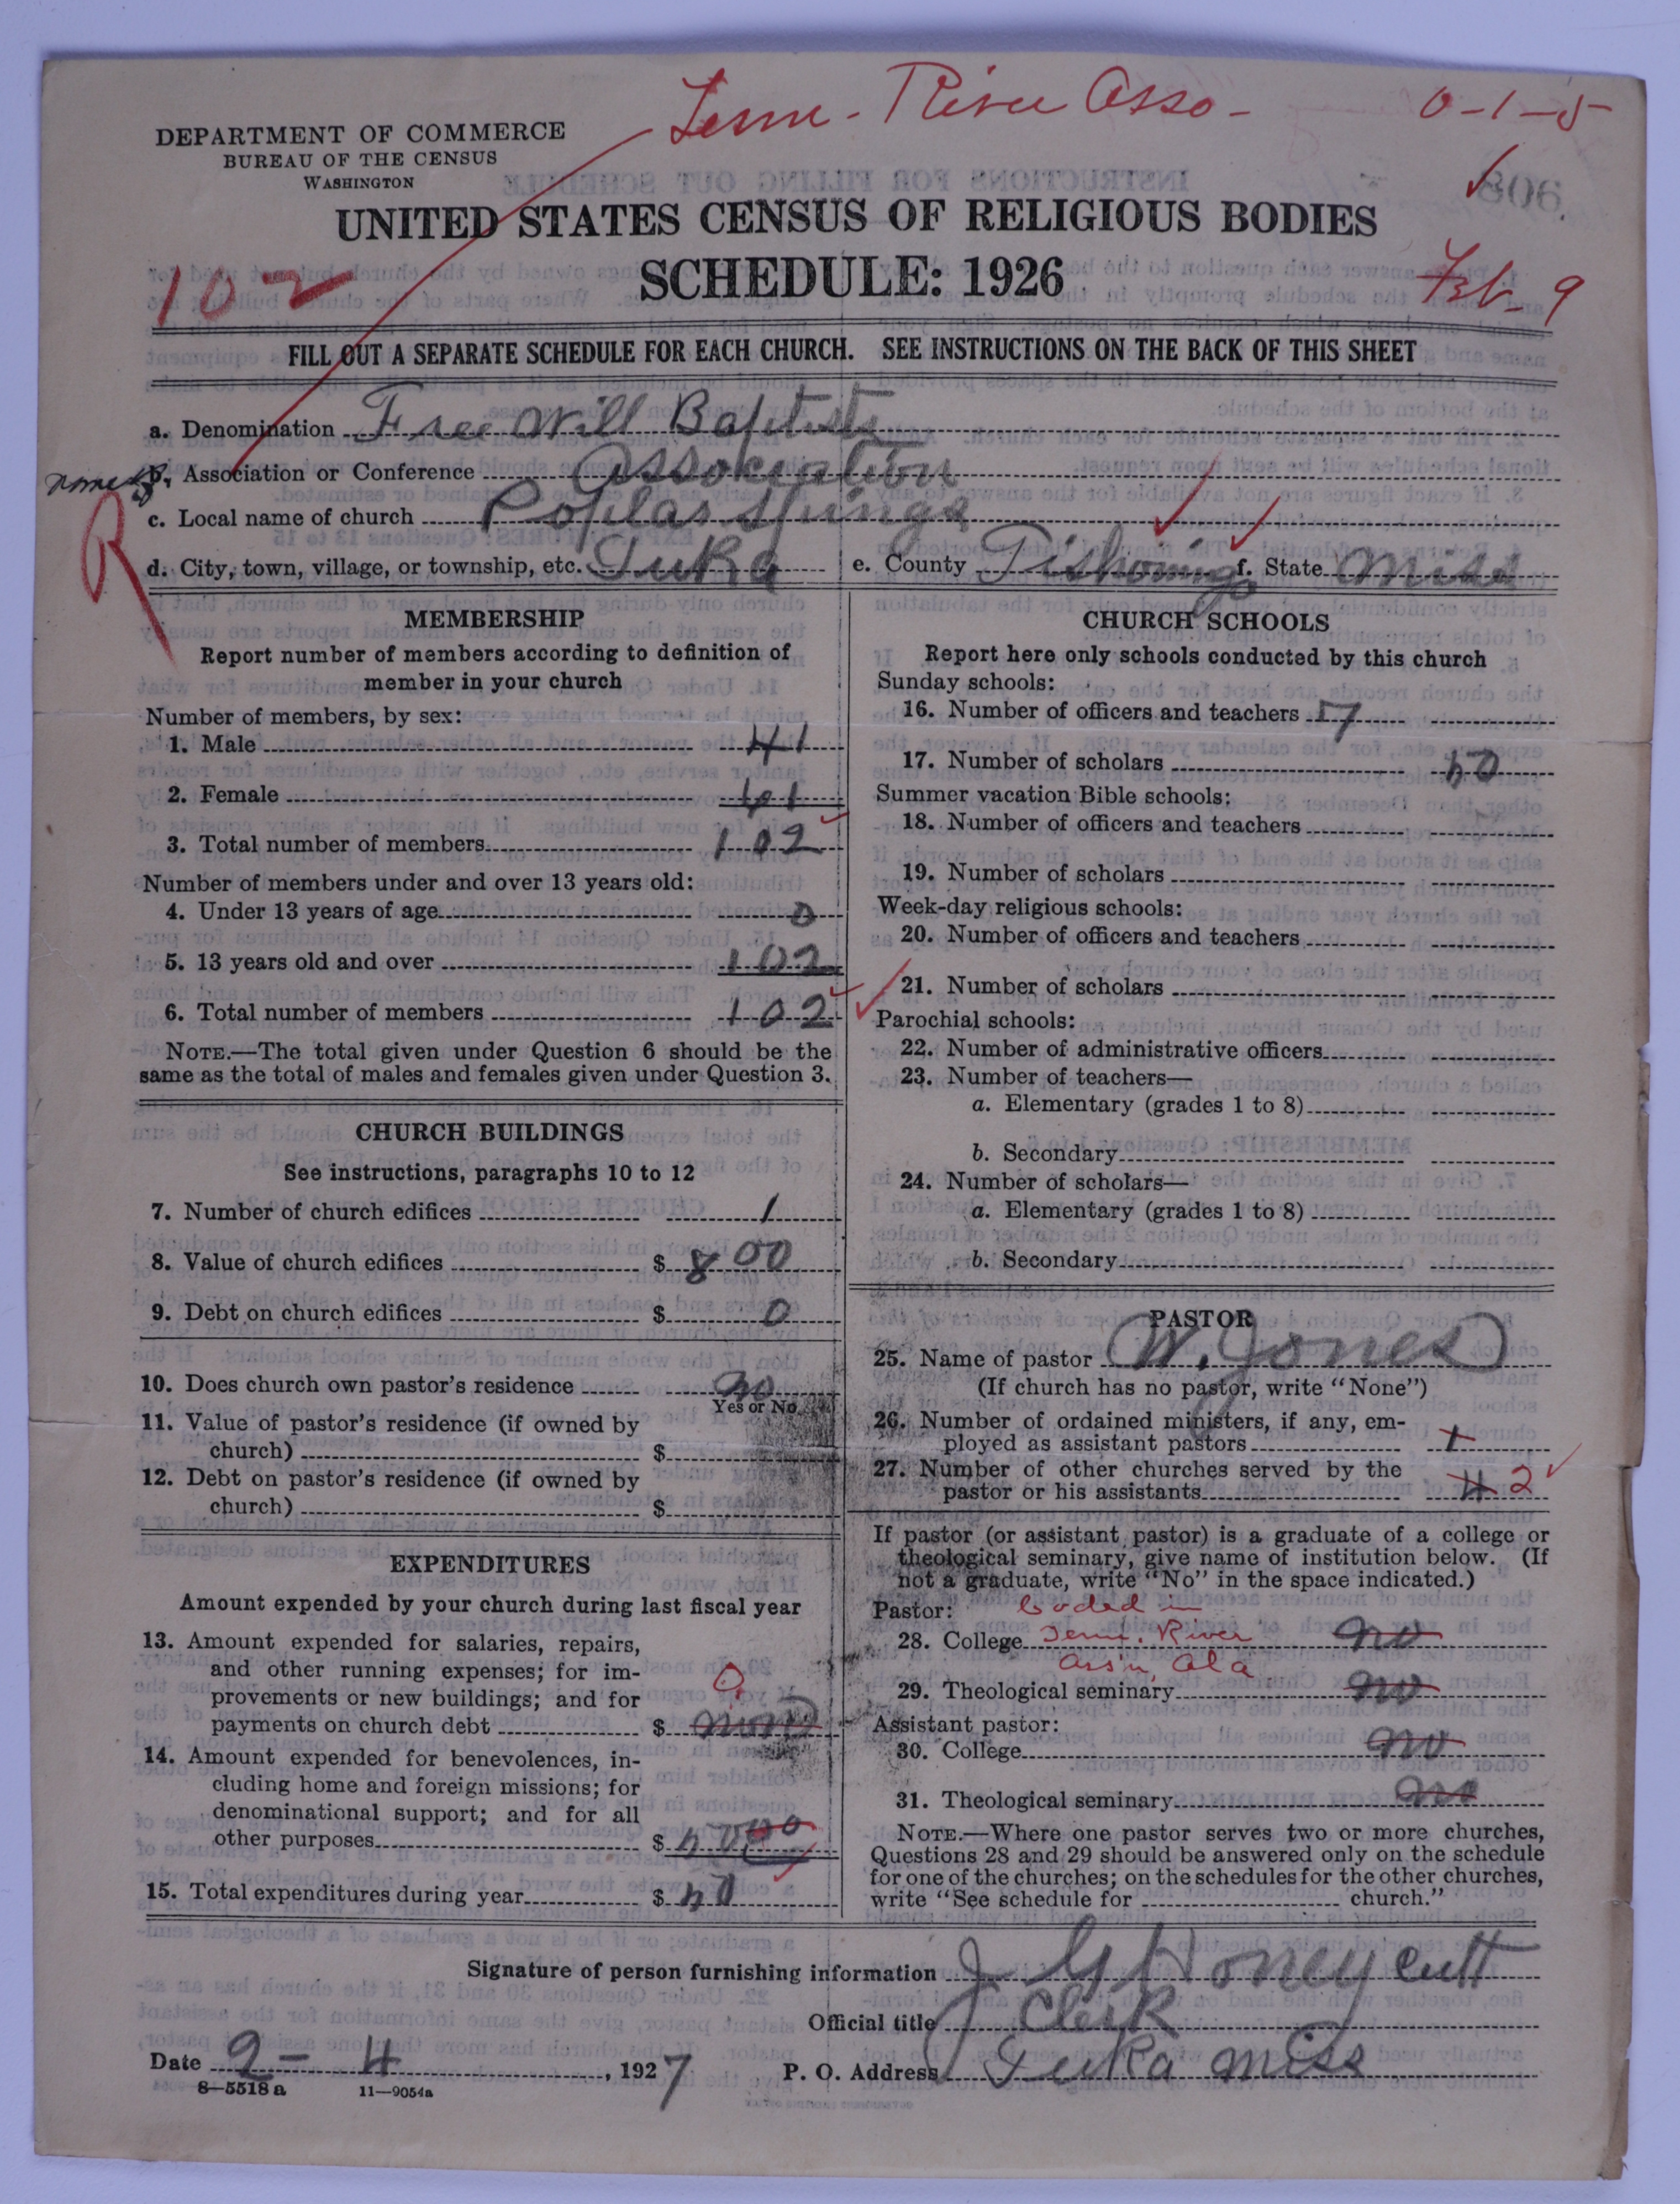 Tenn - River Asso - 0-1-5
DEPARTMENT OF COMMERCE
BUREAU OF THE CENSUS
WASHINGTON
806
UNITED STATES CENSUS OF RELIGIOUS BODIES
102
SCHEDULE: 1926
Feb 9
FILL OUT A SEPARATE SCHEDULE FOR EACH CHURCH. SEE INSTRUCTIONS ON THE BACK OF THIS SHEET
a. Denomination Free Will Baptists
b. Association or Conference Association
c. Local name of church Poplar Springs
R
d. City, town, village, or township, etc. Iuka e. County Tishomingo f. State Miss
MEMBERSHIP
Report number of members according to definition of
member in your church
Number of members, by sex:
1. Male 41
2. Female 61
3. Total number of members 102
Number of members under and over 13 years old:
4. Under 13 years of age 0
5. 13 years old and over 102
6. Total number of members 102
NOTE.—The total given under Question 6 should be the
same as the total of males and females given under Question 3.
CHURCH BUILDINGS
See instructions, paragraphs 10 to 12
7. Number of church edifices 1
8. Value of church edifices $ 800
9. Debt on church edifices $ 0
10. Does church own pastor's residence no
Yes or No
11. Value of pastor's residence (if owned by
church) $
12. Debt on pastor's residence (if owned by
church) $
EXPENDITURES
Amount expended by your church during last fiscal year
13. Amount expended for salaries, repairs,
and other running expenses; for im-
provements or new buildings; and for 0
payments on church debt $ none
14. Amount expended for benevolences, in-
cluding home and foreign missions; for
denominational support; and for all
other purposes $ 5000
15. Total expenditures during year $ 50
CHURCH SCHOOLS
Report here only schools conducted by this church
Sunday schools:
16. Number of officers and teachers 7
17. Number of scholars 50
Summer vacation Bible schools:
18. Number of officers and teachers
19. Number of scholars
Week-day religious schools:
20. Number of officers and teachers
21. Number of scholars
Parochial schools:
22. Number of administrative officers
23. Number of teachers—
a. Elementary (grades 1 to 8)
b. Secondary
24. Number of scholars—
a. Elementary (grades 1 to 8)
b. Secondary
PASTOR
25. Name of pastor W. Jones
(If church has no pastor, write "None")
26. Number of ordained ministers, if any, em-
ployed as assistant pastors 1
27. Number of other churches served by the
pastor or his assistants 4 2
If pastor (or assistant pastor) is a graduate of a college or
theological seminary, give name of institution below. (If
not a graduate, write "No" in the space indicated.)
Pastor: Coded in
28. College Tenn. River no
Ass'n, Ala
29. Theological seminary no
Assistant pastor:
30. College no
31. Theological seminary no
NOTE.—Where one pastor serves two or more churches,
Questions 28 and 29 should be answered only on the schedule
for one of the churches; on the schedules for the other churches,
write "See schedule for church."
Signature of person furnishing information J G Honeycutt
Official title Clerk
Date 2-4, 1927 P. O. Address Iuka Miss
8—5518a 11—9054a